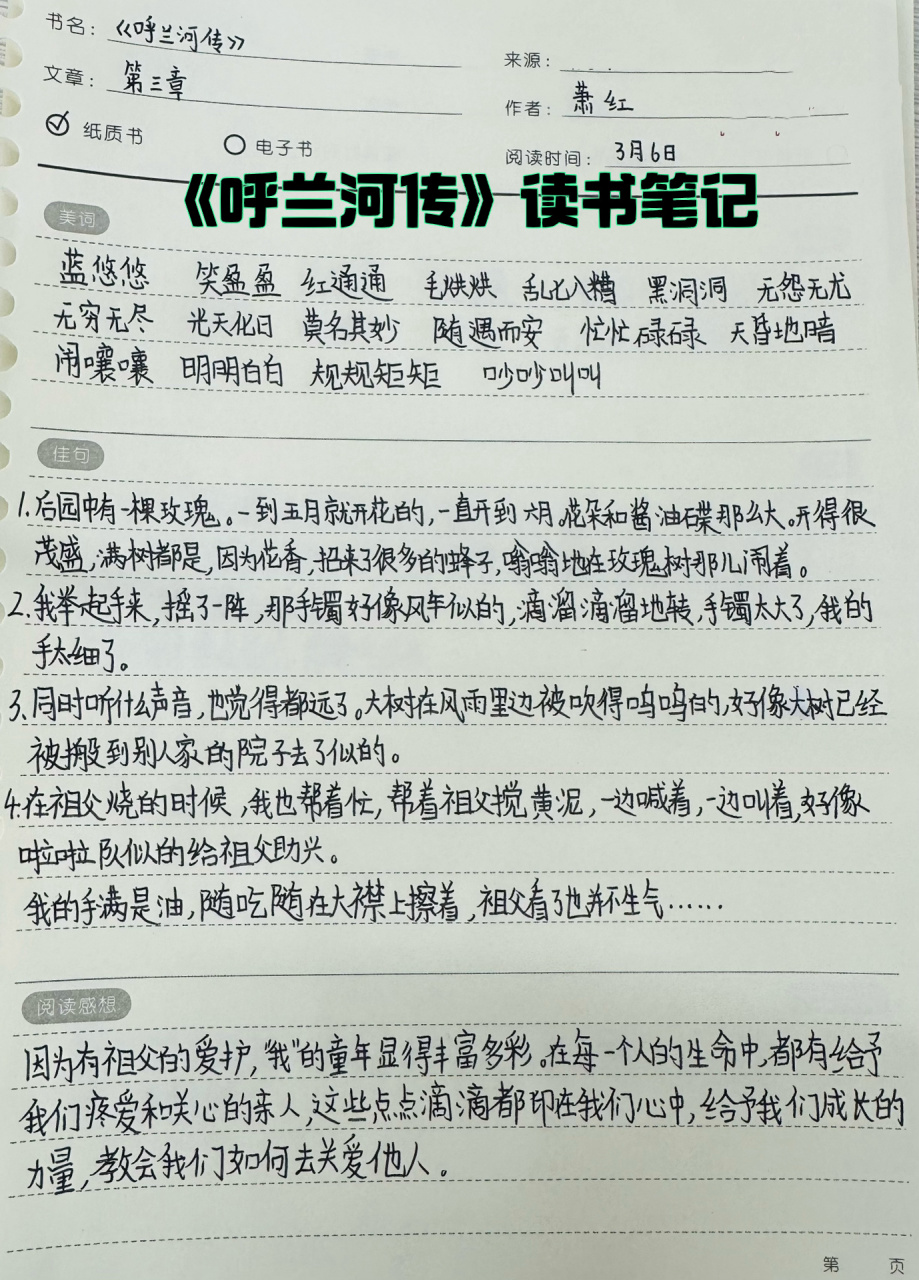 书名：《呼兰河传》
来源：
文章：第三章
作者：萧红
纸质书 电子书
阅读时间：3月6日
《呼兰河传》读书笔记
美词
蓝悠悠 笑盈盈 红通通 毛烘烘 乱七八糟 黑洞洞 无怨无尤
无穷无尽 光天化日 莫名其妙 随遇而安 忙忙碌碌 天昏地暗
闹嚷嚷 明明白白 规规矩矩 吵吵叫叫
佳句
1.后园中有一棵玫瑰。一到五月就开花的，一直开到六月。花朵和酱油碟那么大。开得很
茂盛，满树都是，因为花香，招来了很多的蜂子，嗡嗡地在玫瑰树那儿闹着。
2.我举起手来，摇了一阵，那手镯好像风车似的，滴溜滴溜地转，手镯太大了，我的
手太细了。
3.同时听什么声音，也觉得都远了。大树在风雨里边被吹得呜呜的，好像大树已经
被搬到别人家的院子去了似的。
4.在祖父烧的时候，我也帮着忙，帮着祖父搅黄泥，一边喊着，一边叫着，好像
啦啦队似的给祖父助兴。
我的手满是油，随吃随在大襟上擦着，祖父看了也并不生气……
阅读感想
因为有祖父的爱护，“我”的童年显得丰富多彩。在每一个人的生命中，都有给予
我们疼爱和关心的亲人，这些点点滴滴都印在我们心中，给予我们成长的
力量，教会我们如何去关爱他人。
第 页